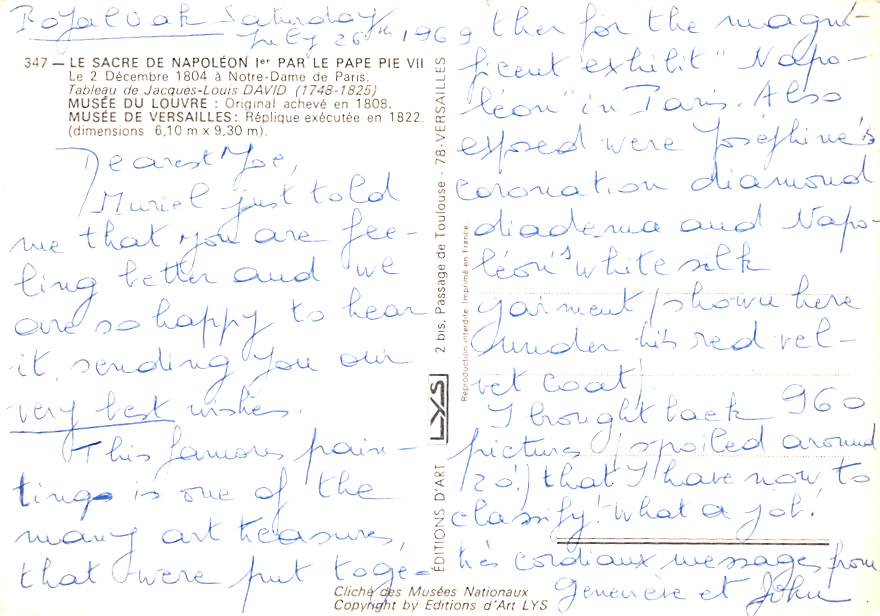 Royal Oak Saturday
July 26th, 1969
347 — LE SACRE DE NAPOLÉON Ier PAR LE PAPE PIE VII
Le 2 Décembre 1804 à Notre-Dame de Paris.
Tableau de Jacques-Louis DAVID (1748-1825)
MUSÉE DU LOUVRE : Original achevé en 1808.
MUSÉE DE VERSAILLES : Réplique exécutée en 1822.
(dimensions 6,10 m x 9,30 m).
Dearest Joe,
Muriel just told
me that you are fee-
ling better and we
are so happy to hear
it, sending you our
very best wishes.
This famous pain-
ting is one of the
many art treasures,
that were put toge-
ther for the magni-
ficent exhibit "Napo-
léon" in Paris. Also
exposed were Joséphine's
coronation diamond
diadema and Napo-
léon's white silk
garment (shown here
under his red vel-
vet coat).
I brought back 960
pictures (spoiled around
20!) that I have now to
classify! What a job!
très cordiaux messages from
Geneviève et John
ÉDITIONS D'ART LYS 2 bis, Passage de Toulouse - 78-VERSAILLES
Reproduction interdite Imprimé en France
Cliché des Musées Nationaux
Copyright by Editions d'Art LYS